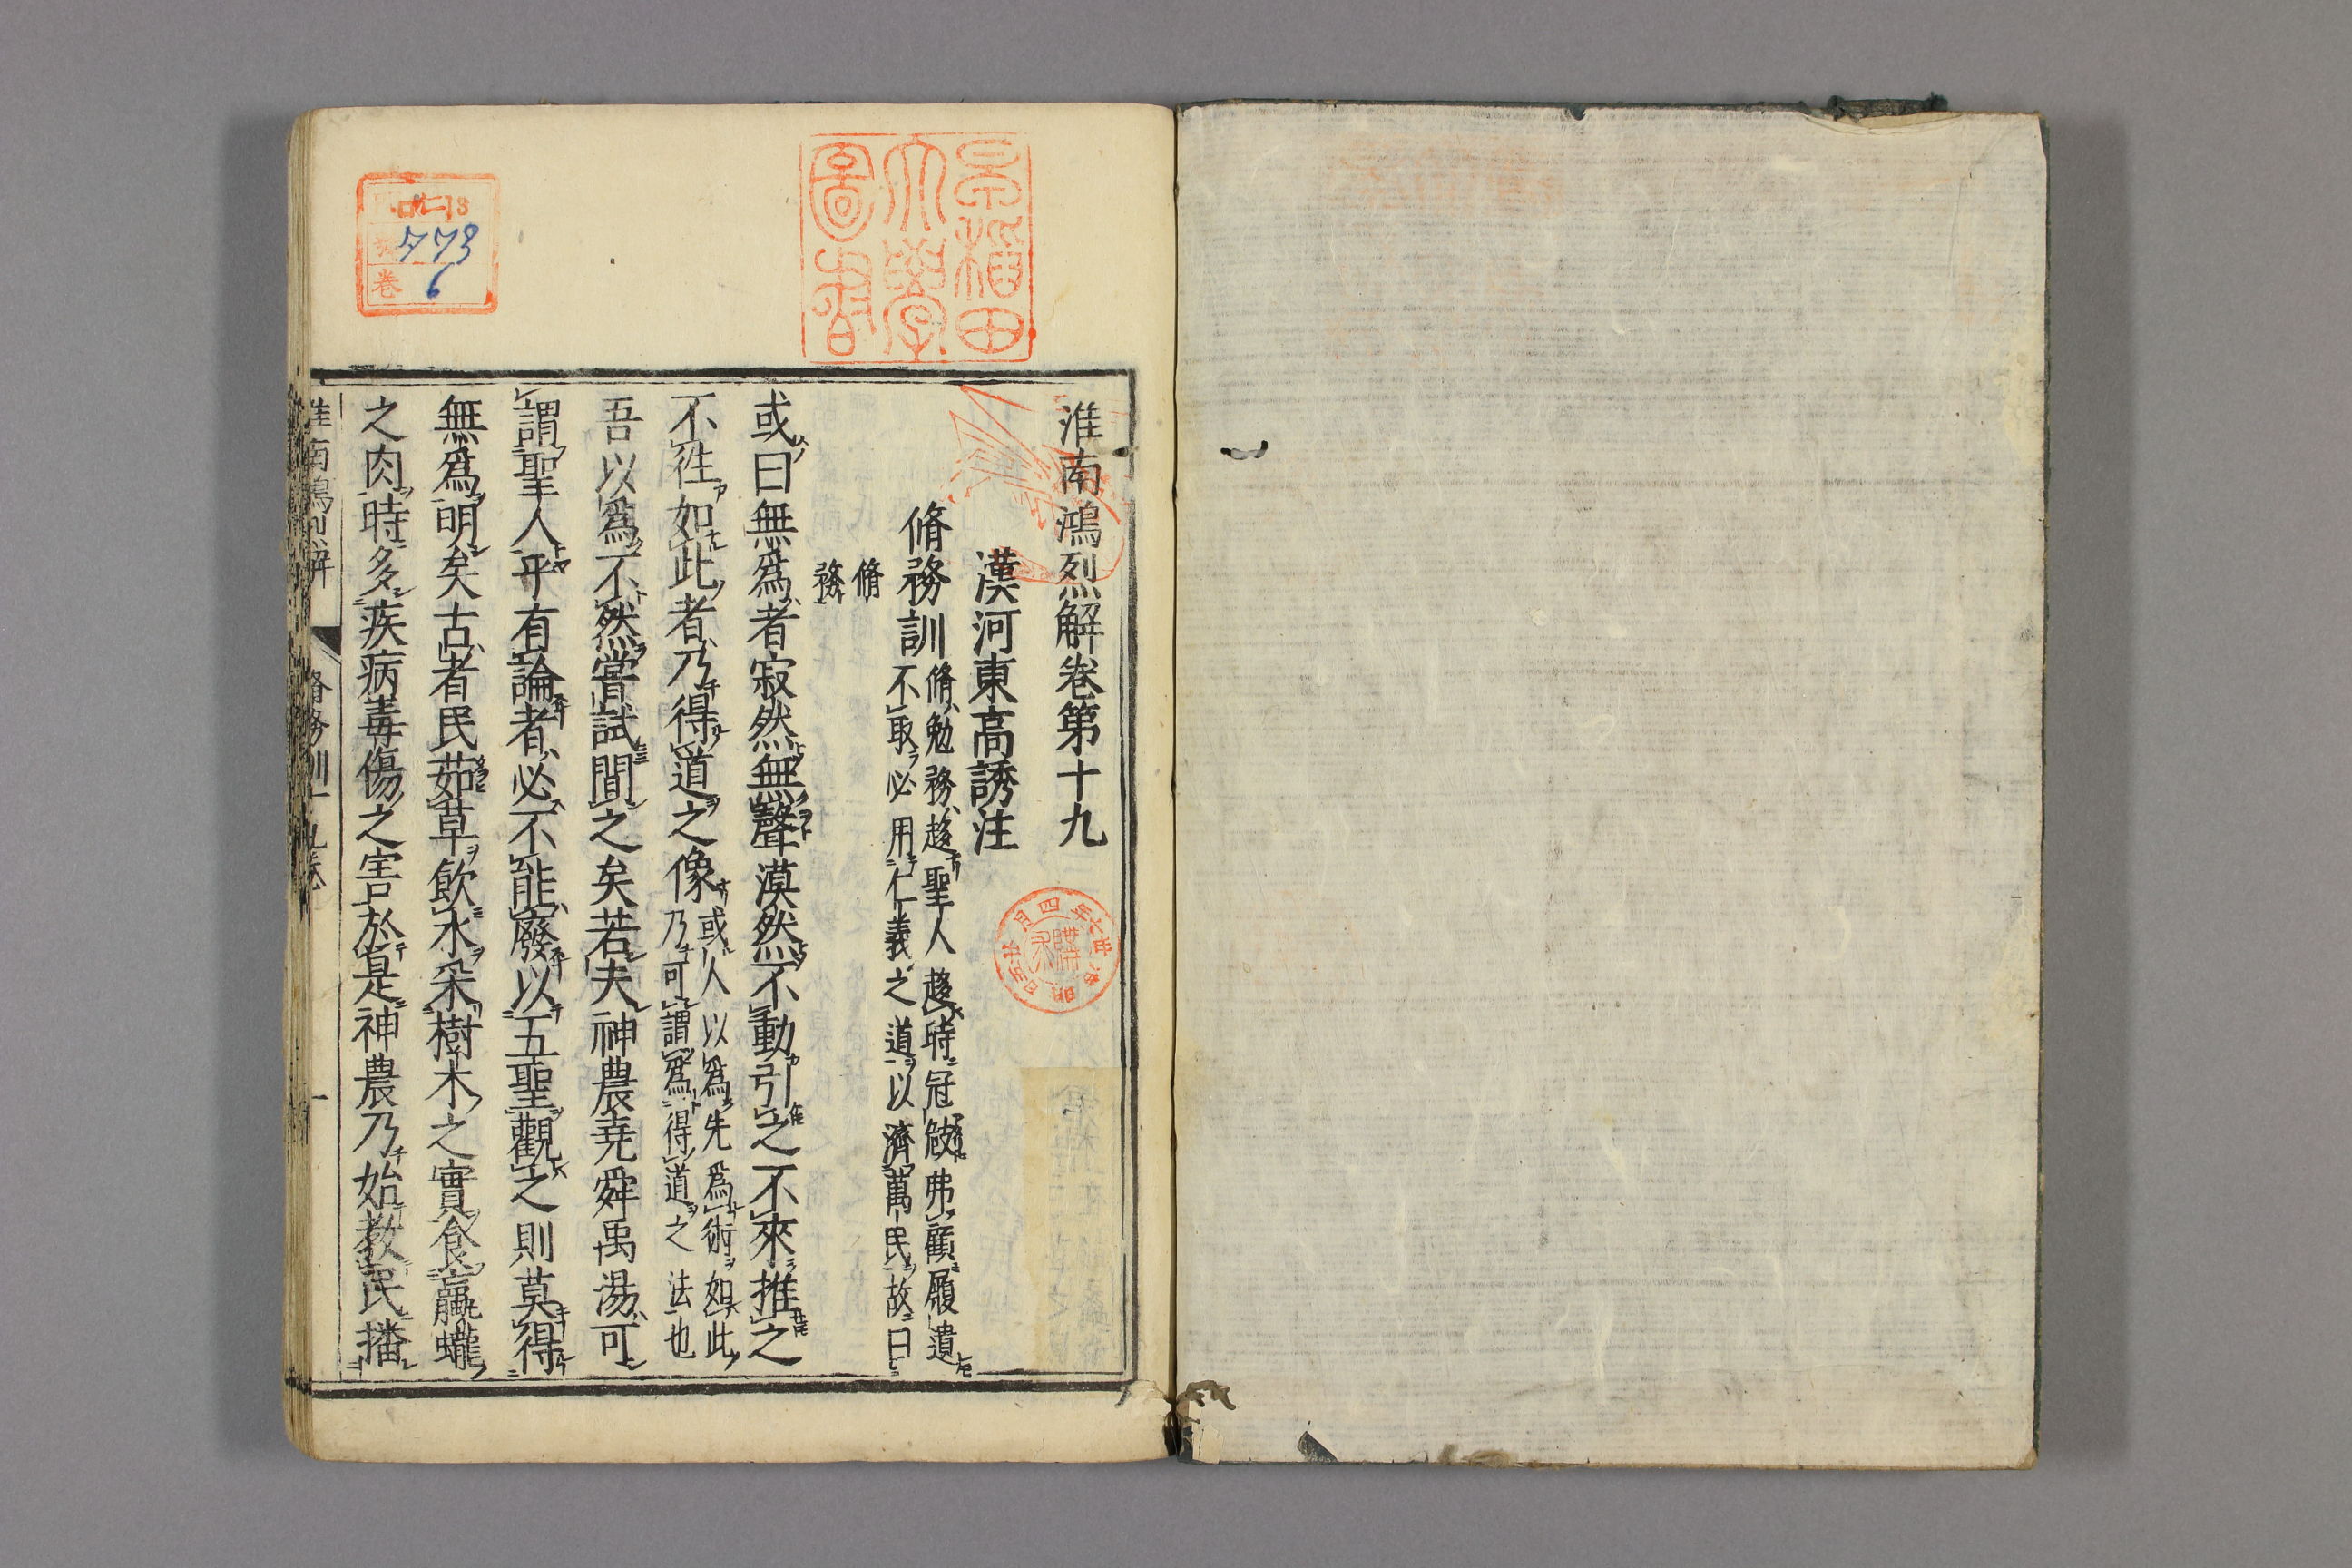 淮南鴻烈解卷第十九
漢河東高誘注
脩務訓
脩勉務趍聖人趍時冠㪇弗顧履遺
不取必用仁義之道以濟萬民故曰
脩
務
或曰無爲者寂然無聲漠然不動引之不來推之
不徃如此者乃得道之像
或人以爲先爲術如此
乃可謂爲得道之法也
吾以爲不然嘗試問之矣若夫神農堯舜禹湯可
謂聖人乎有論者必不能廢以五聖觀之則莫得
無爲明矣古者民茹草飲水采樹木之實食蠃蠬
之肉時多疾病毒傷之害於是神農乃始教民播
淮南鴻烈解
脩務訓
一
早稻田
大學
圖書
773
卷
6